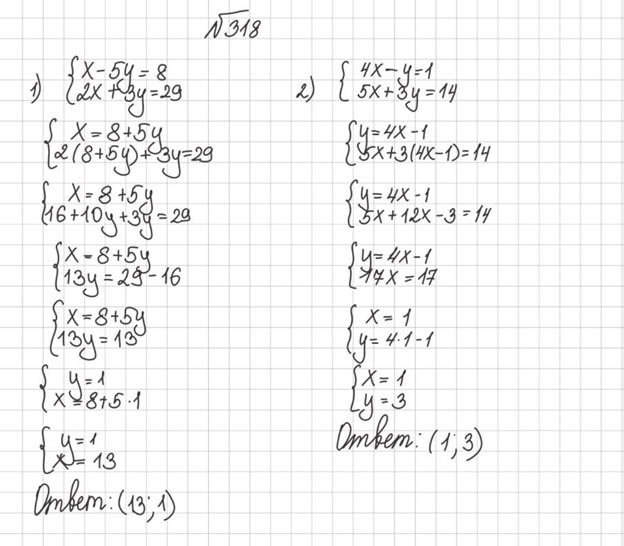 √318
1) { x - 5y = 8
2x + 3y = 29
{ x = 8 + 5y
2(8+5y) + 3y = 29
{ x = 8 + 5y
16 + 10y + 3y = 29
{ x = 8 + 5y
13y = 29 - 16
{ x = 8 + 5y
13y = 13
{ y = 1
x = 8 + 5·1
{ y = 1
x = 13
Ответ: (13; 1)
2) { 4x - y = 1
5x + 3y = 14
{ y = 4x - 1
5x + 3(4x - 1) = 14
{ y = 4x - 1
5x + 12x - 3 = 14
{ y = 4x - 1
17x = 17
{ x = 1
y = 4·1 - 1
{ x = 1
y = 3
Ответ: (1; 3)